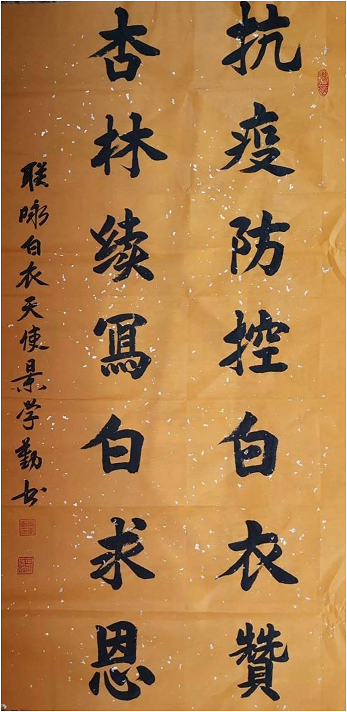 抗疫防控白衣贊
杏林续寫白求恩
联咏白衣天使景学勤书